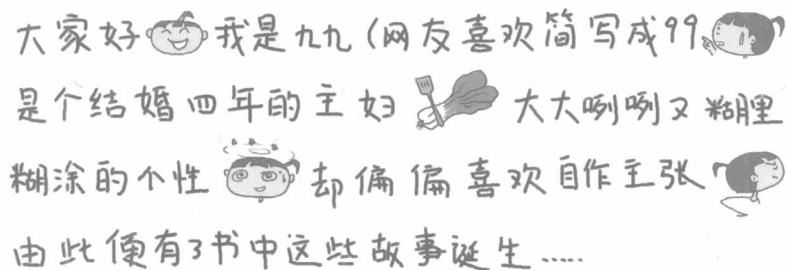 大家好我是九九（网友喜欢简写成99
是个结婚四年的主妇 大大咧咧又糊里
糊涂的个性 却偏偏喜欢自作主张
由此便有了书中这些故事诞生……